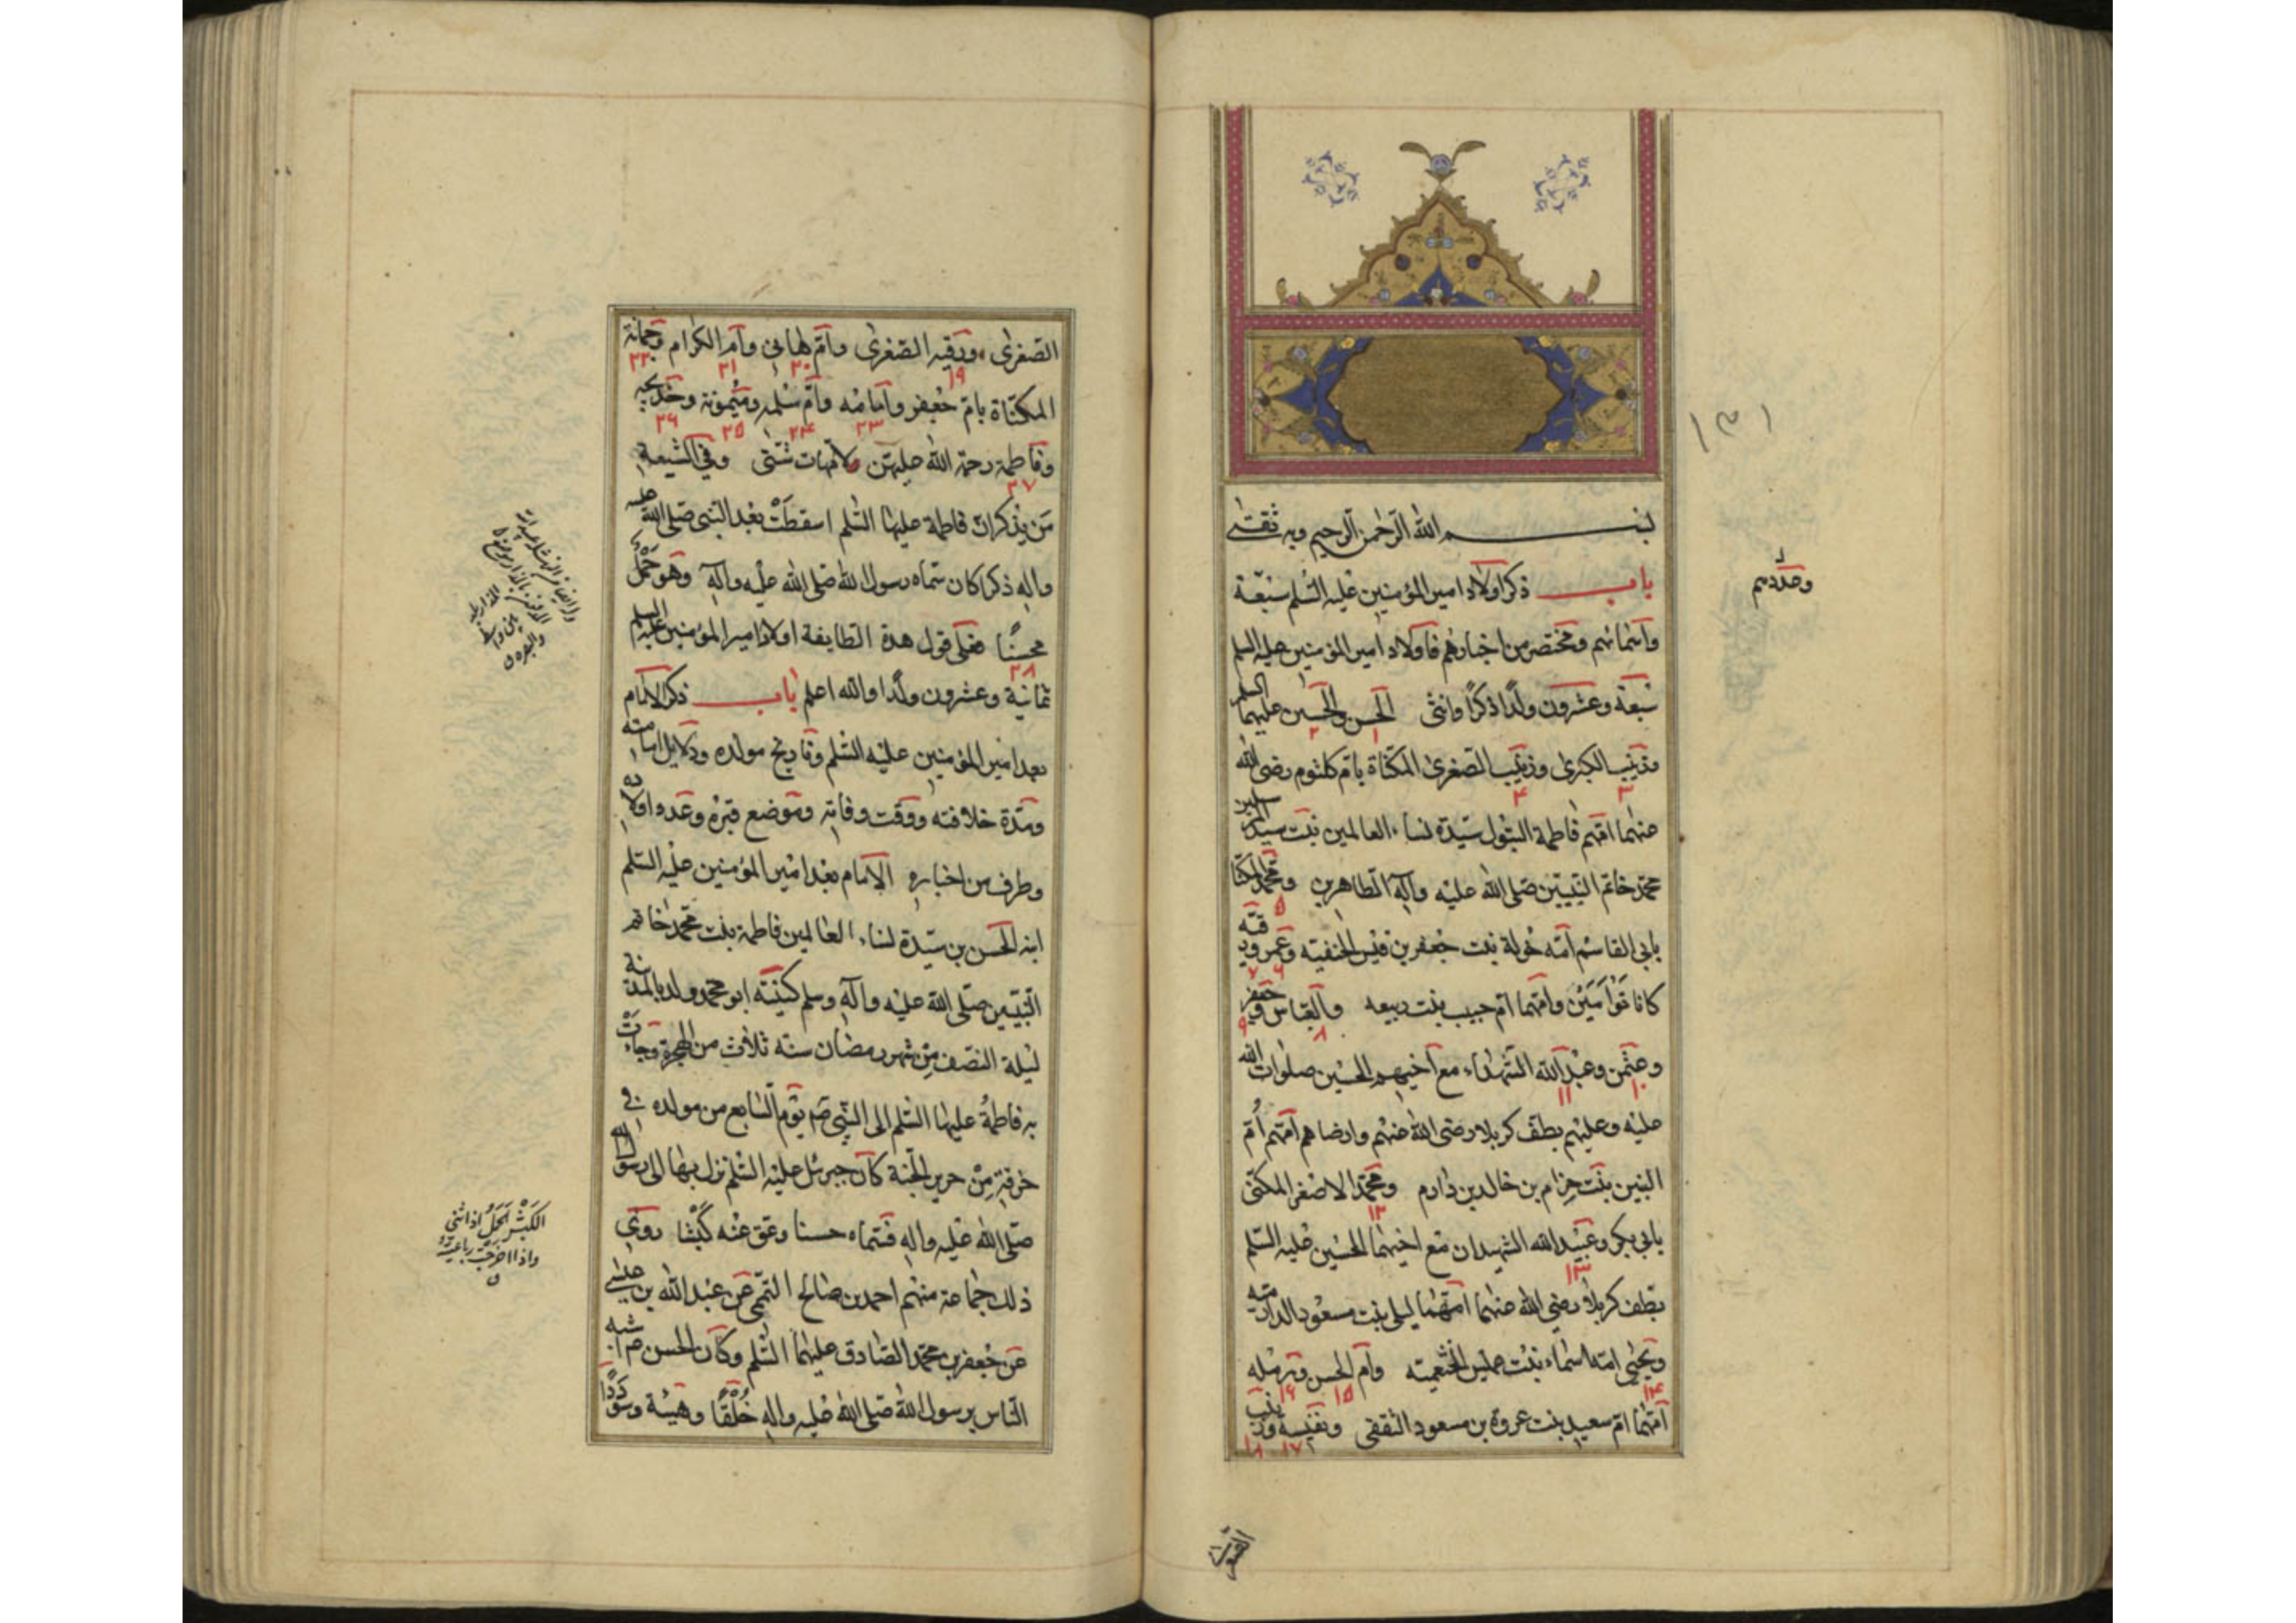 بسم الله الرحمن الرحيم وبه ثقتى
باب ذكر اولاد امير المؤمنين عليه السلم سبعة
واسمائهم ومختصر من اخبارهم فاولاد امير المؤمنين عليه السلم
سبعة وعشرون ولدا ذكرا وانثى الحسن والحسين عليهما السلم
١ ٢
وزينب الكبرى وزينب الصغرى المكناة بام كلثوم رضى الله
٣ ٤
عنهما امهم فاطمة البتول سيدة نساء العالمين بنت سيد المرسلين
محمد خاتم النبيين صلى الله عليه وآله الطاهرين ومحمد المكنا
٥
بابى القاسم امه خولة بنت جعفر بن قيس الحنفيه وعمر ورقيه
٦ ٧
كانا توأمين وامهما ام حبيب بنت ربيعه والعباس وجعفر
٨ ٩
وعثمن وعبد الله الشهداء مع اخيهم الحسين صلوات الله
١٠ ١١
عليه وعليهم بطف كربلا رضى الله عنهم وارضاهم امهم أم
البنين بنت حزام بن خالد بن دارم ومحمد الاصغر المكنى
١٢
بابى بكر وعبيد الله الشهيدان مع اخيهما الحسين عليه السلم
١٣
بطف كربلا رضى الله عنهما امهما ليلى بنت مسعود الدارميه
ويحيى امه اسماء بنت عميس الخثعميه وام الحسن ورمله
١٤ ١٥ ١٦
امهما ام سعيد بنت عروة بن مسعود الثقفى ونفيسه وزينب
١٧ ١٨
١٣١
وعددهم
الصغرى
الصغرى ورقيه الصغرى وام هانى وام الكرام وجمانة
١٩ ٢٠ ٢١ ٢٢
المكناة بام جعفر وامامه وام سلمه وميمونة وخديجه
٢٣ ٢٤ ٢٥ ٢٦
وفاطمة رحمة الله عليهن لامهات شتى وفى الشيعة
٢٧
من يذكر ان فاطمة عليها السلم اسقطت بعد النبى صلى الله عليه
واله ذكرا كان سماه رسول الله صلى الله عليه وآله وهو حمل
محسنا فعلى قول هذه الطايفة اولاد امير المؤمنين عليه السلم
٢٨
ثمانية وعشرون ولدا والله اعلم باب ذكر الامام
بعد امير المؤمنين عليه السلم وتاريخ مولده ودلايل امامته
ومدة خلافته ووقت وفاته وموضع قبره وعدد اولاده
وطرف من اخباره الامام بعد امير المؤمنين عليه السلم
ابنه الحسن بن سيدة نساء العالمين فاطمة بنت محمد خاتم
النبيين صلى الله عليه وآله وسلم كنيته ابو محمد ولد بالمدينة
ليلة النصف من شهر رمضان سنة ثلاث من الهجرة وجاءت
به فاطمة عليها السلم الى النبى صم يوم السابع من مولده فى
خرقة من حرير الجنة كان جبرئل عليه السلم نزل بها الى رسول الله
صلى الله عليه واله فسماه حسنا وعق عنه كبشا روى
ذلك جماعة منهم احمد بن صالح التميمى عن عبد الله بن عيسى
عن جعفر بن محمد الصادق عليهما السلم وكان الحسن م اشبه
الناس برسول الله صلى الله عليه واله خلقا وهيئة وسوددا
الكبش الحمل اذا اثنى
واذا اخرجت رباعيته